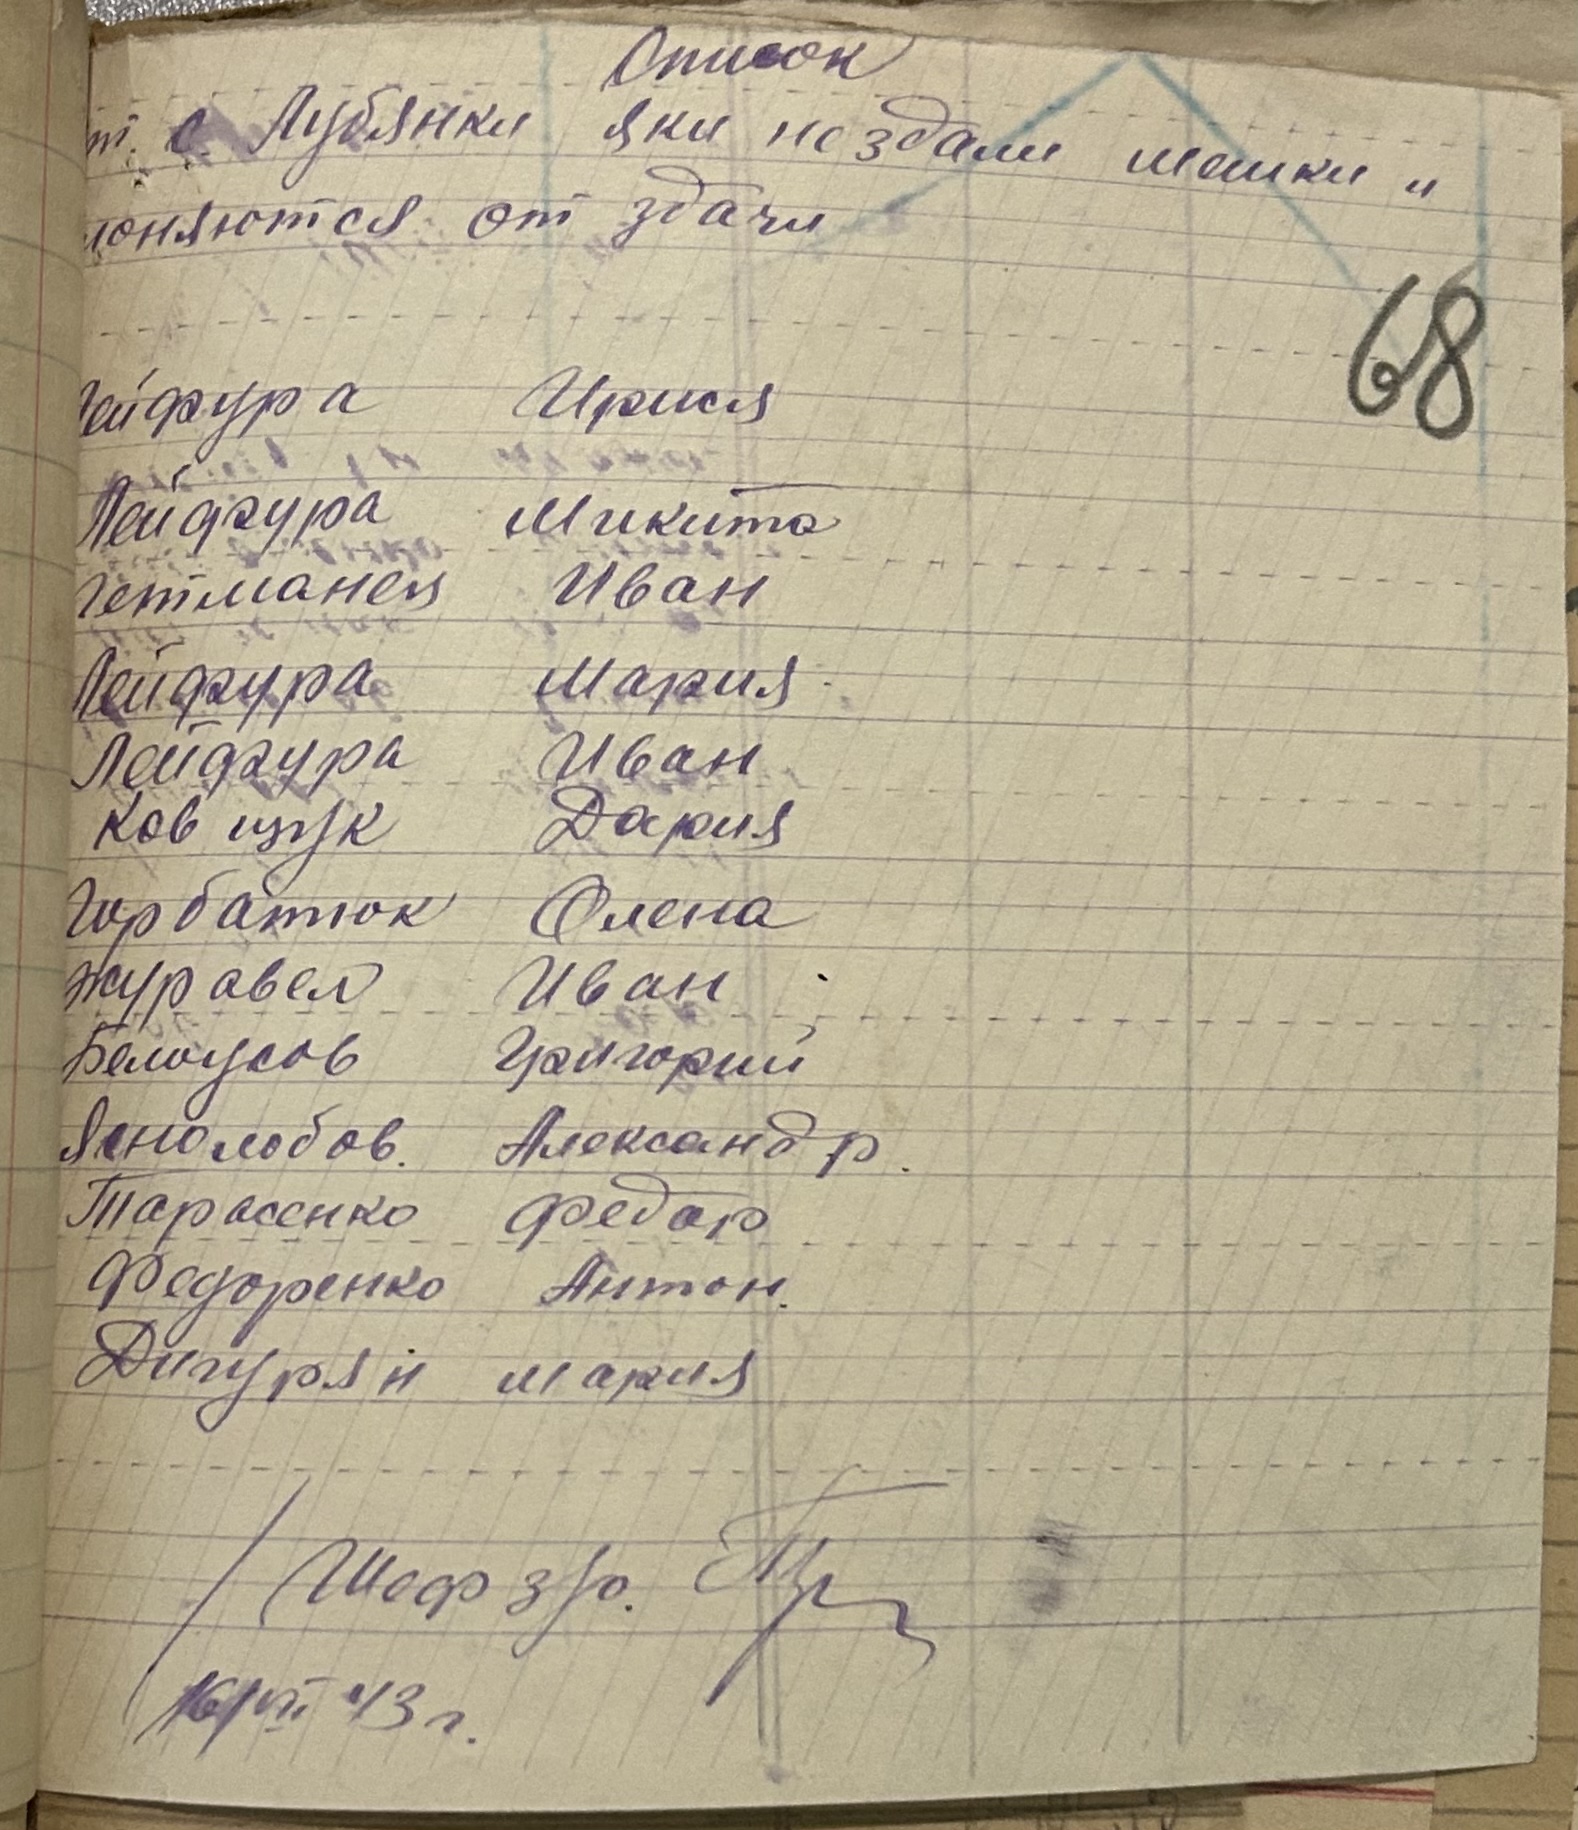 Список
т. с Лубянки яки не здали мешки "
лоняются от здачи
68
Лейфура Ирися
Лейфура Микита
Гетманец Иван
Лейфура Мария
Лейфура Иван
Ковщук Дария
Горбатюк Олена
Журавел Иван
Белоусов Григорий
Яснолобов. Александр.
Тарасенко Федор
Федоренко Антон.
Дигурян мария
Шеф з/о.
16/VII 43 г.